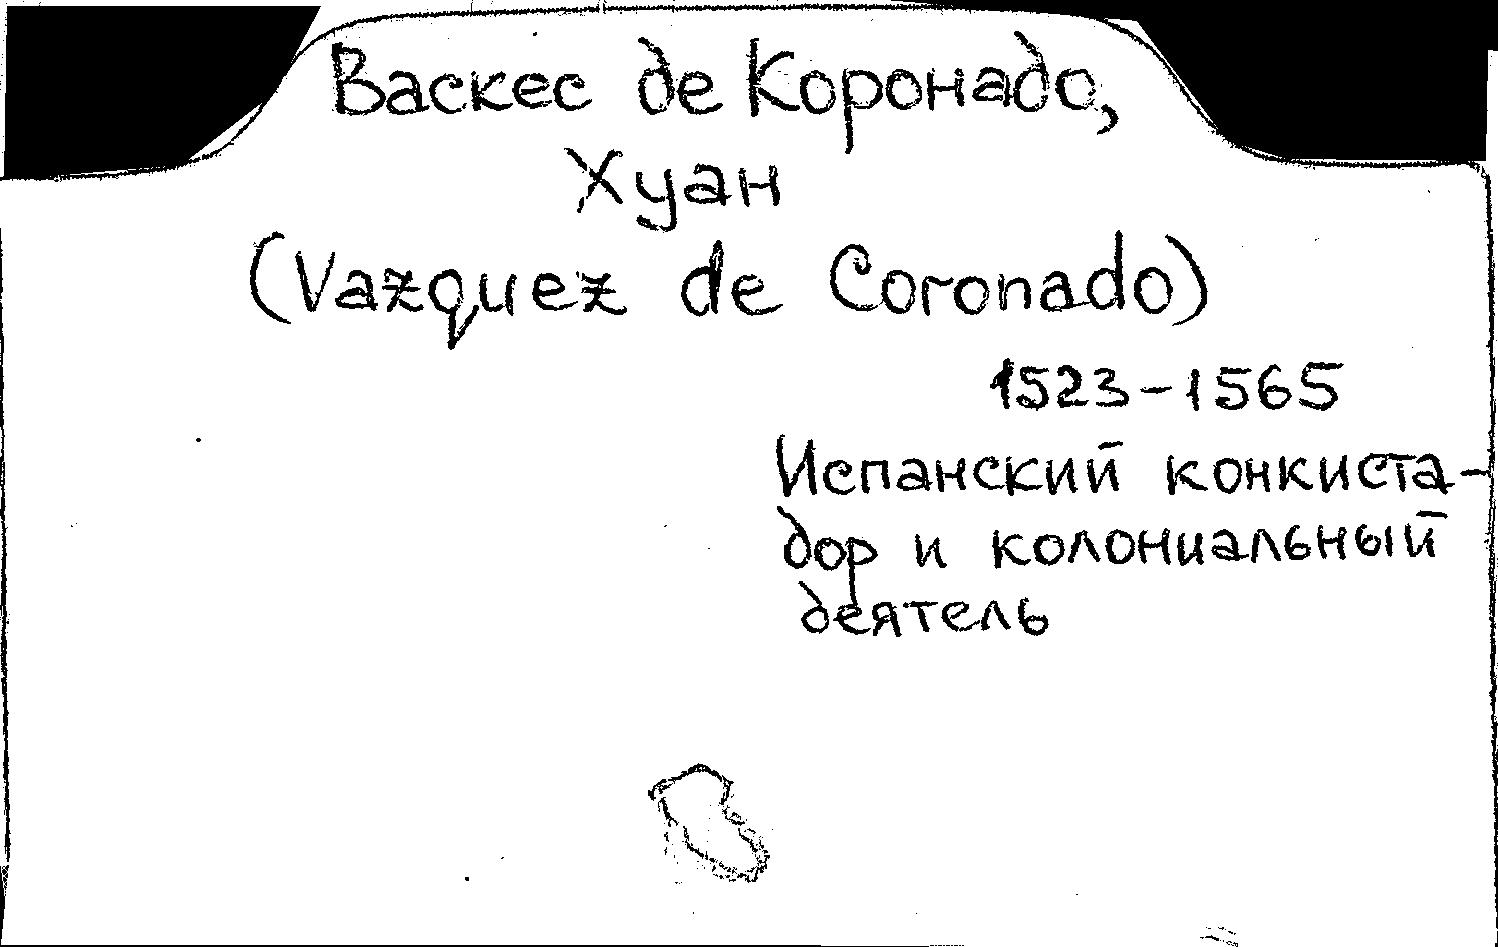 Васкес де Коронадо,
Хуан
(Vazquez de Coronado)
1523-1565
Испанский конкиста-
дор и колониальный
деятель